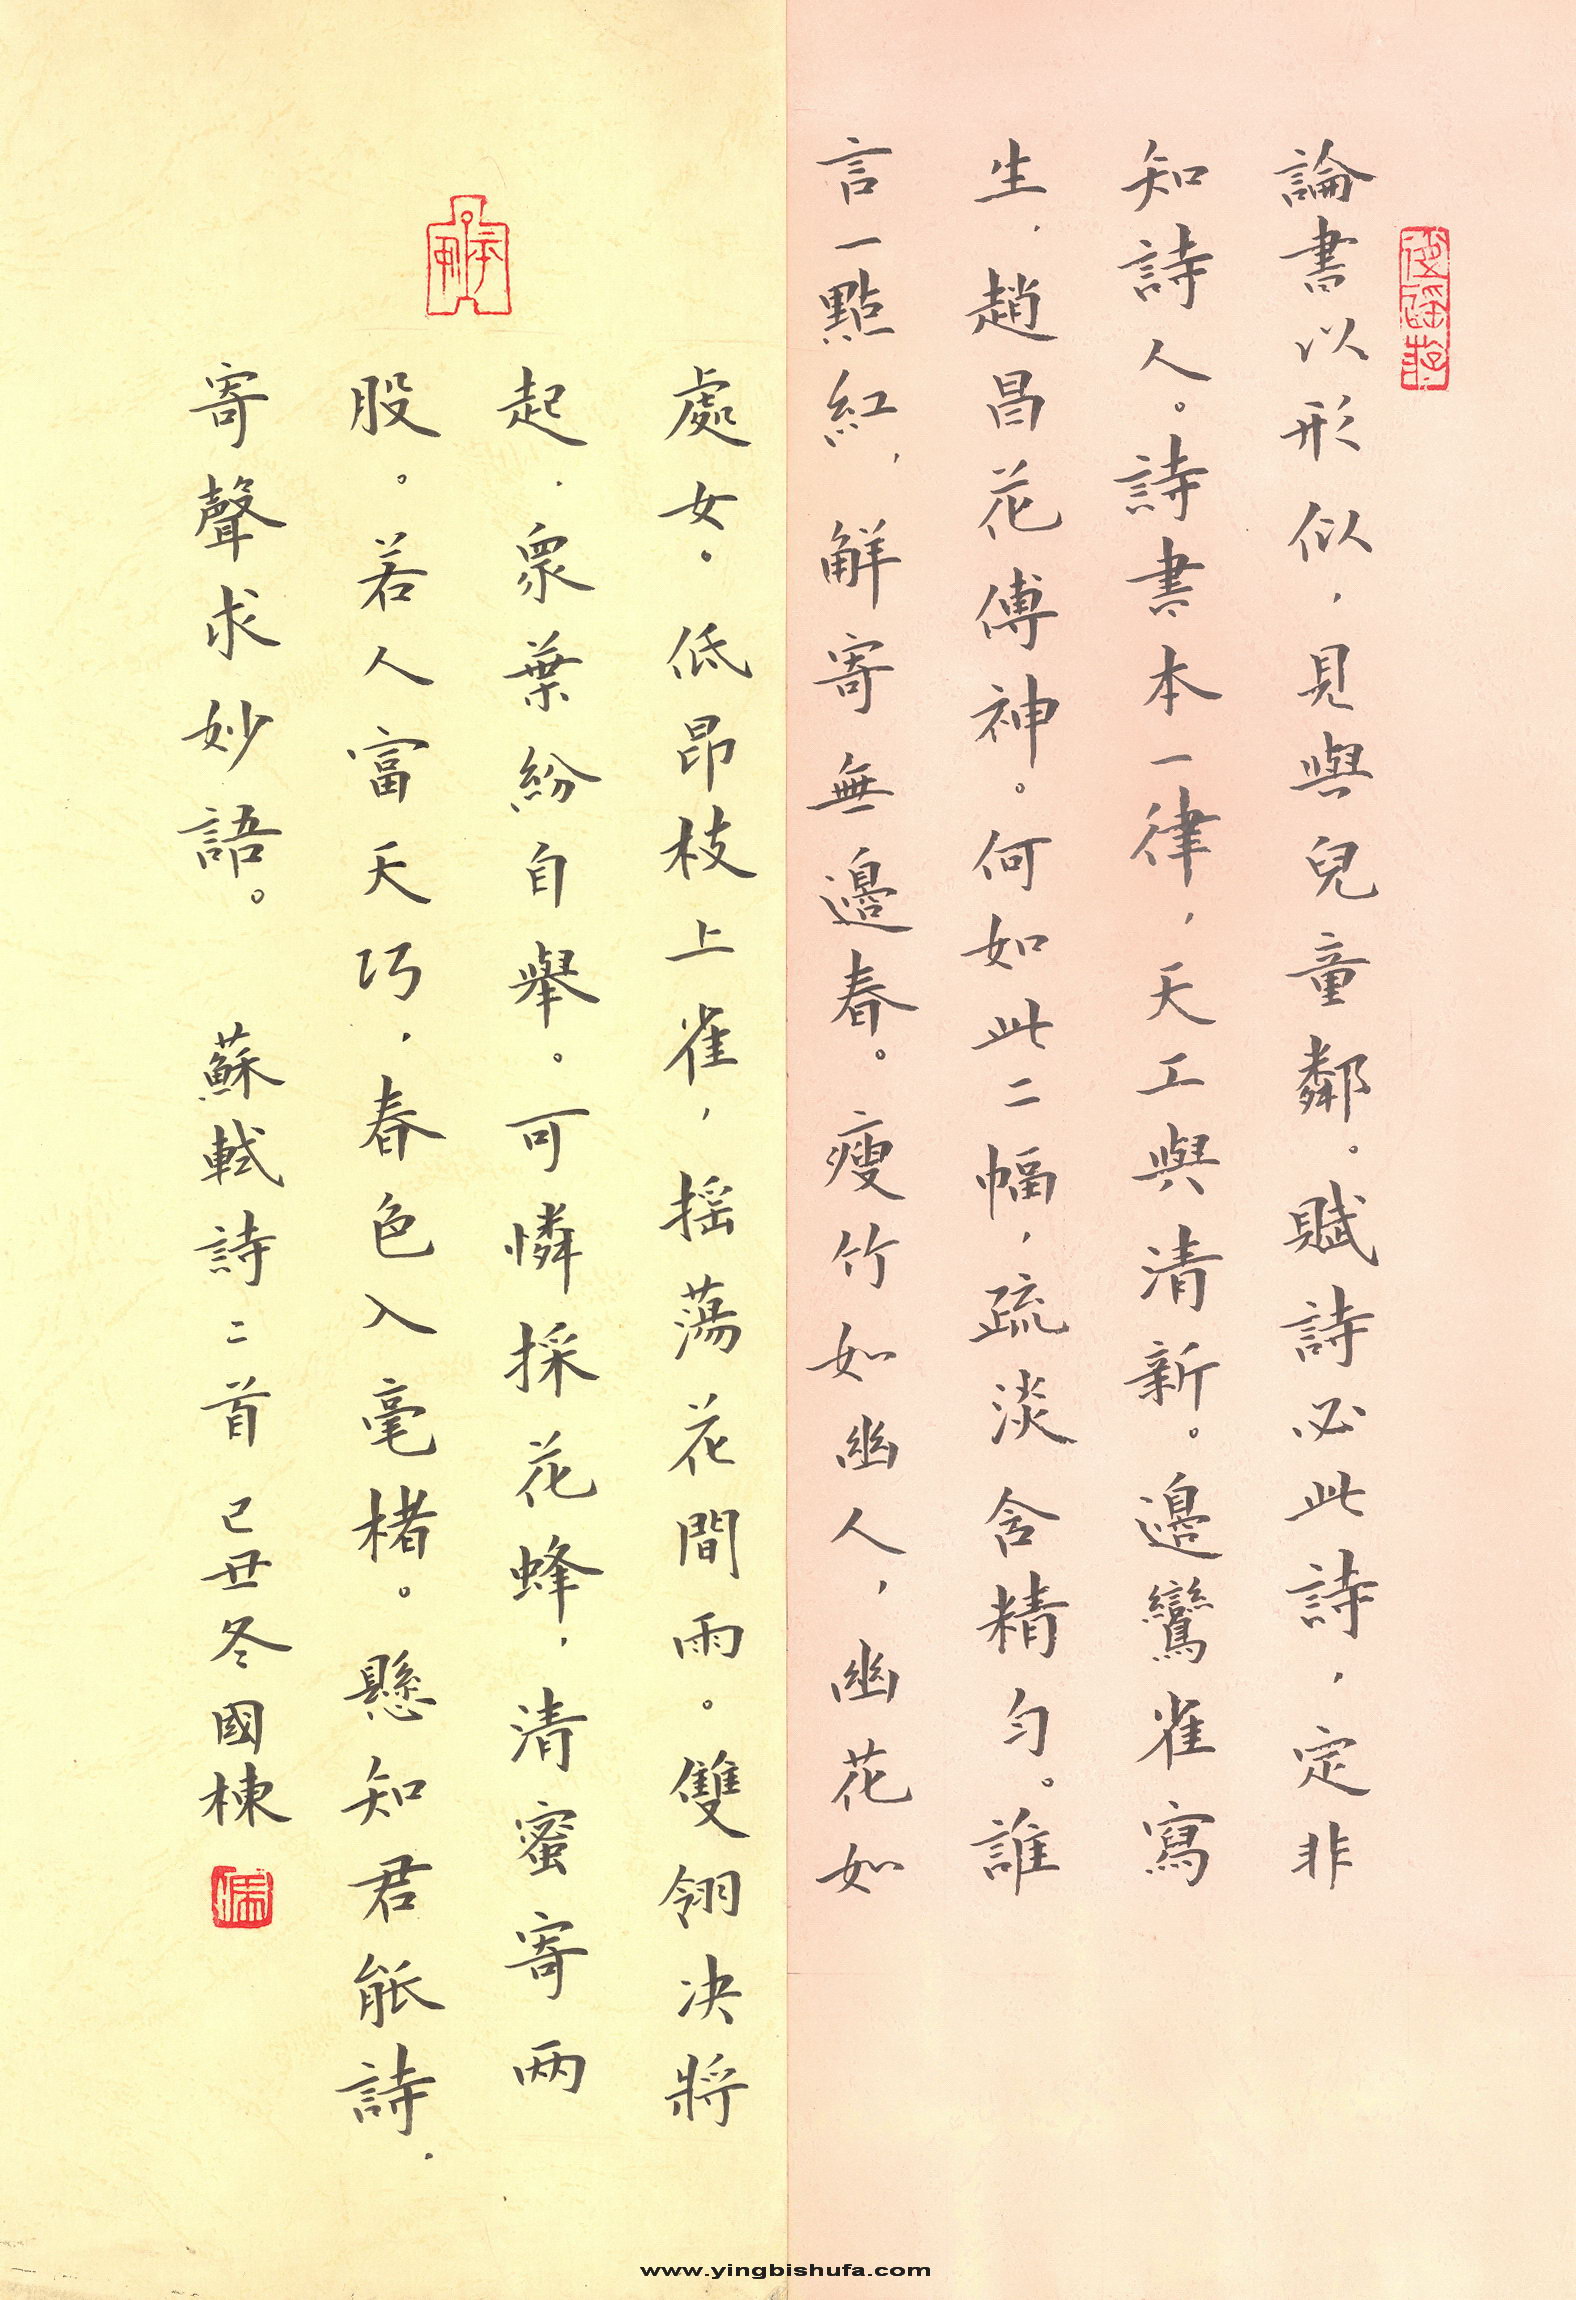 論書以形似，見與兒童鄰。賦詩必此詩，定非
知詩人。詩書本一律，天工與清新。邊鸞雀寫
生，趙昌花傅神。何如此二幅，疏淡含精勻。誰
言一點紅，解寄無邊春。瘦竹如幽人，幽花如
處女。低昂枝上雀，搖蕩花間雨。雙翎决將
起，眾葉紛自舉。可憐採花蜂，清蜜寄两
股。若人富天巧，春色入毫楮。懸知君能詩，
寄聲求妙語。 蘇軾詩二首 己丑冬國棟
www.yingbishufa.com